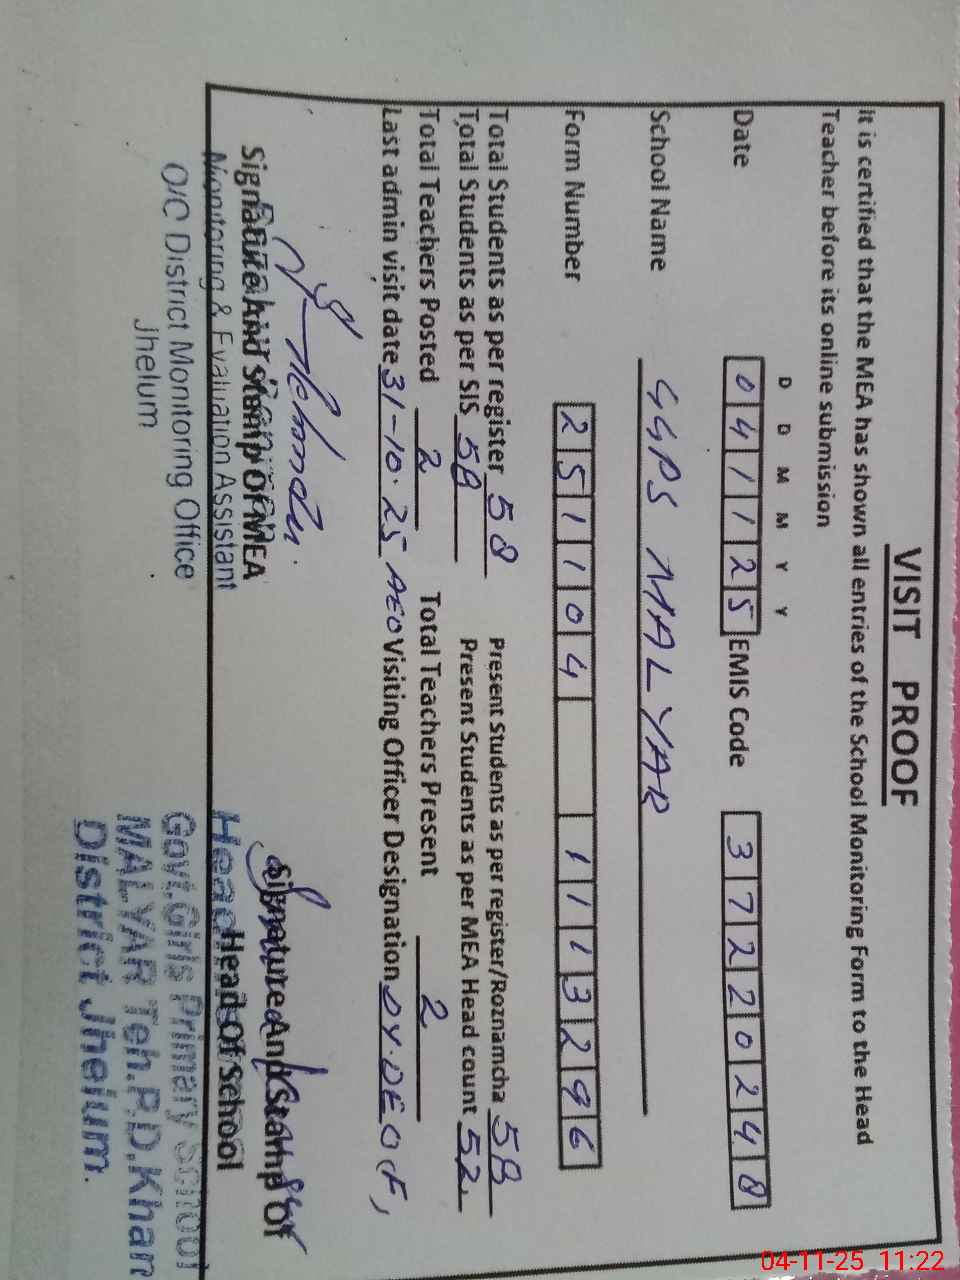 VISIT PROOF
It is certified that the MEA has shown all entries of the School Monitoring Form to the Head
Teacher before its online submission
D D M M Y Y
Date 041125 EMIS Code 37220248
School Name GGPS MALYAR
Form Number 251104 1113296
Total Students as per register 58 Present Students as per register/Roznamcha 58
Total Students as per SIS 58 Present Students as per MEA Head count 52
Total Teachers Posted 2 Total Teachers Present 2
Last admin visit date 31-10-25 AEO Visiting Officer Designation DY.DEO (F)
Signature And Stamp Of MEA
Monitoring & Evaluation Assistant
O/C District Monitoring Office
Jhelum
Signature And Stamp Of
Head Of School
Govt.Girls Primary School
MALYAR Teh.P.D.Khan
District Jhelum.
04-11-25 11:22